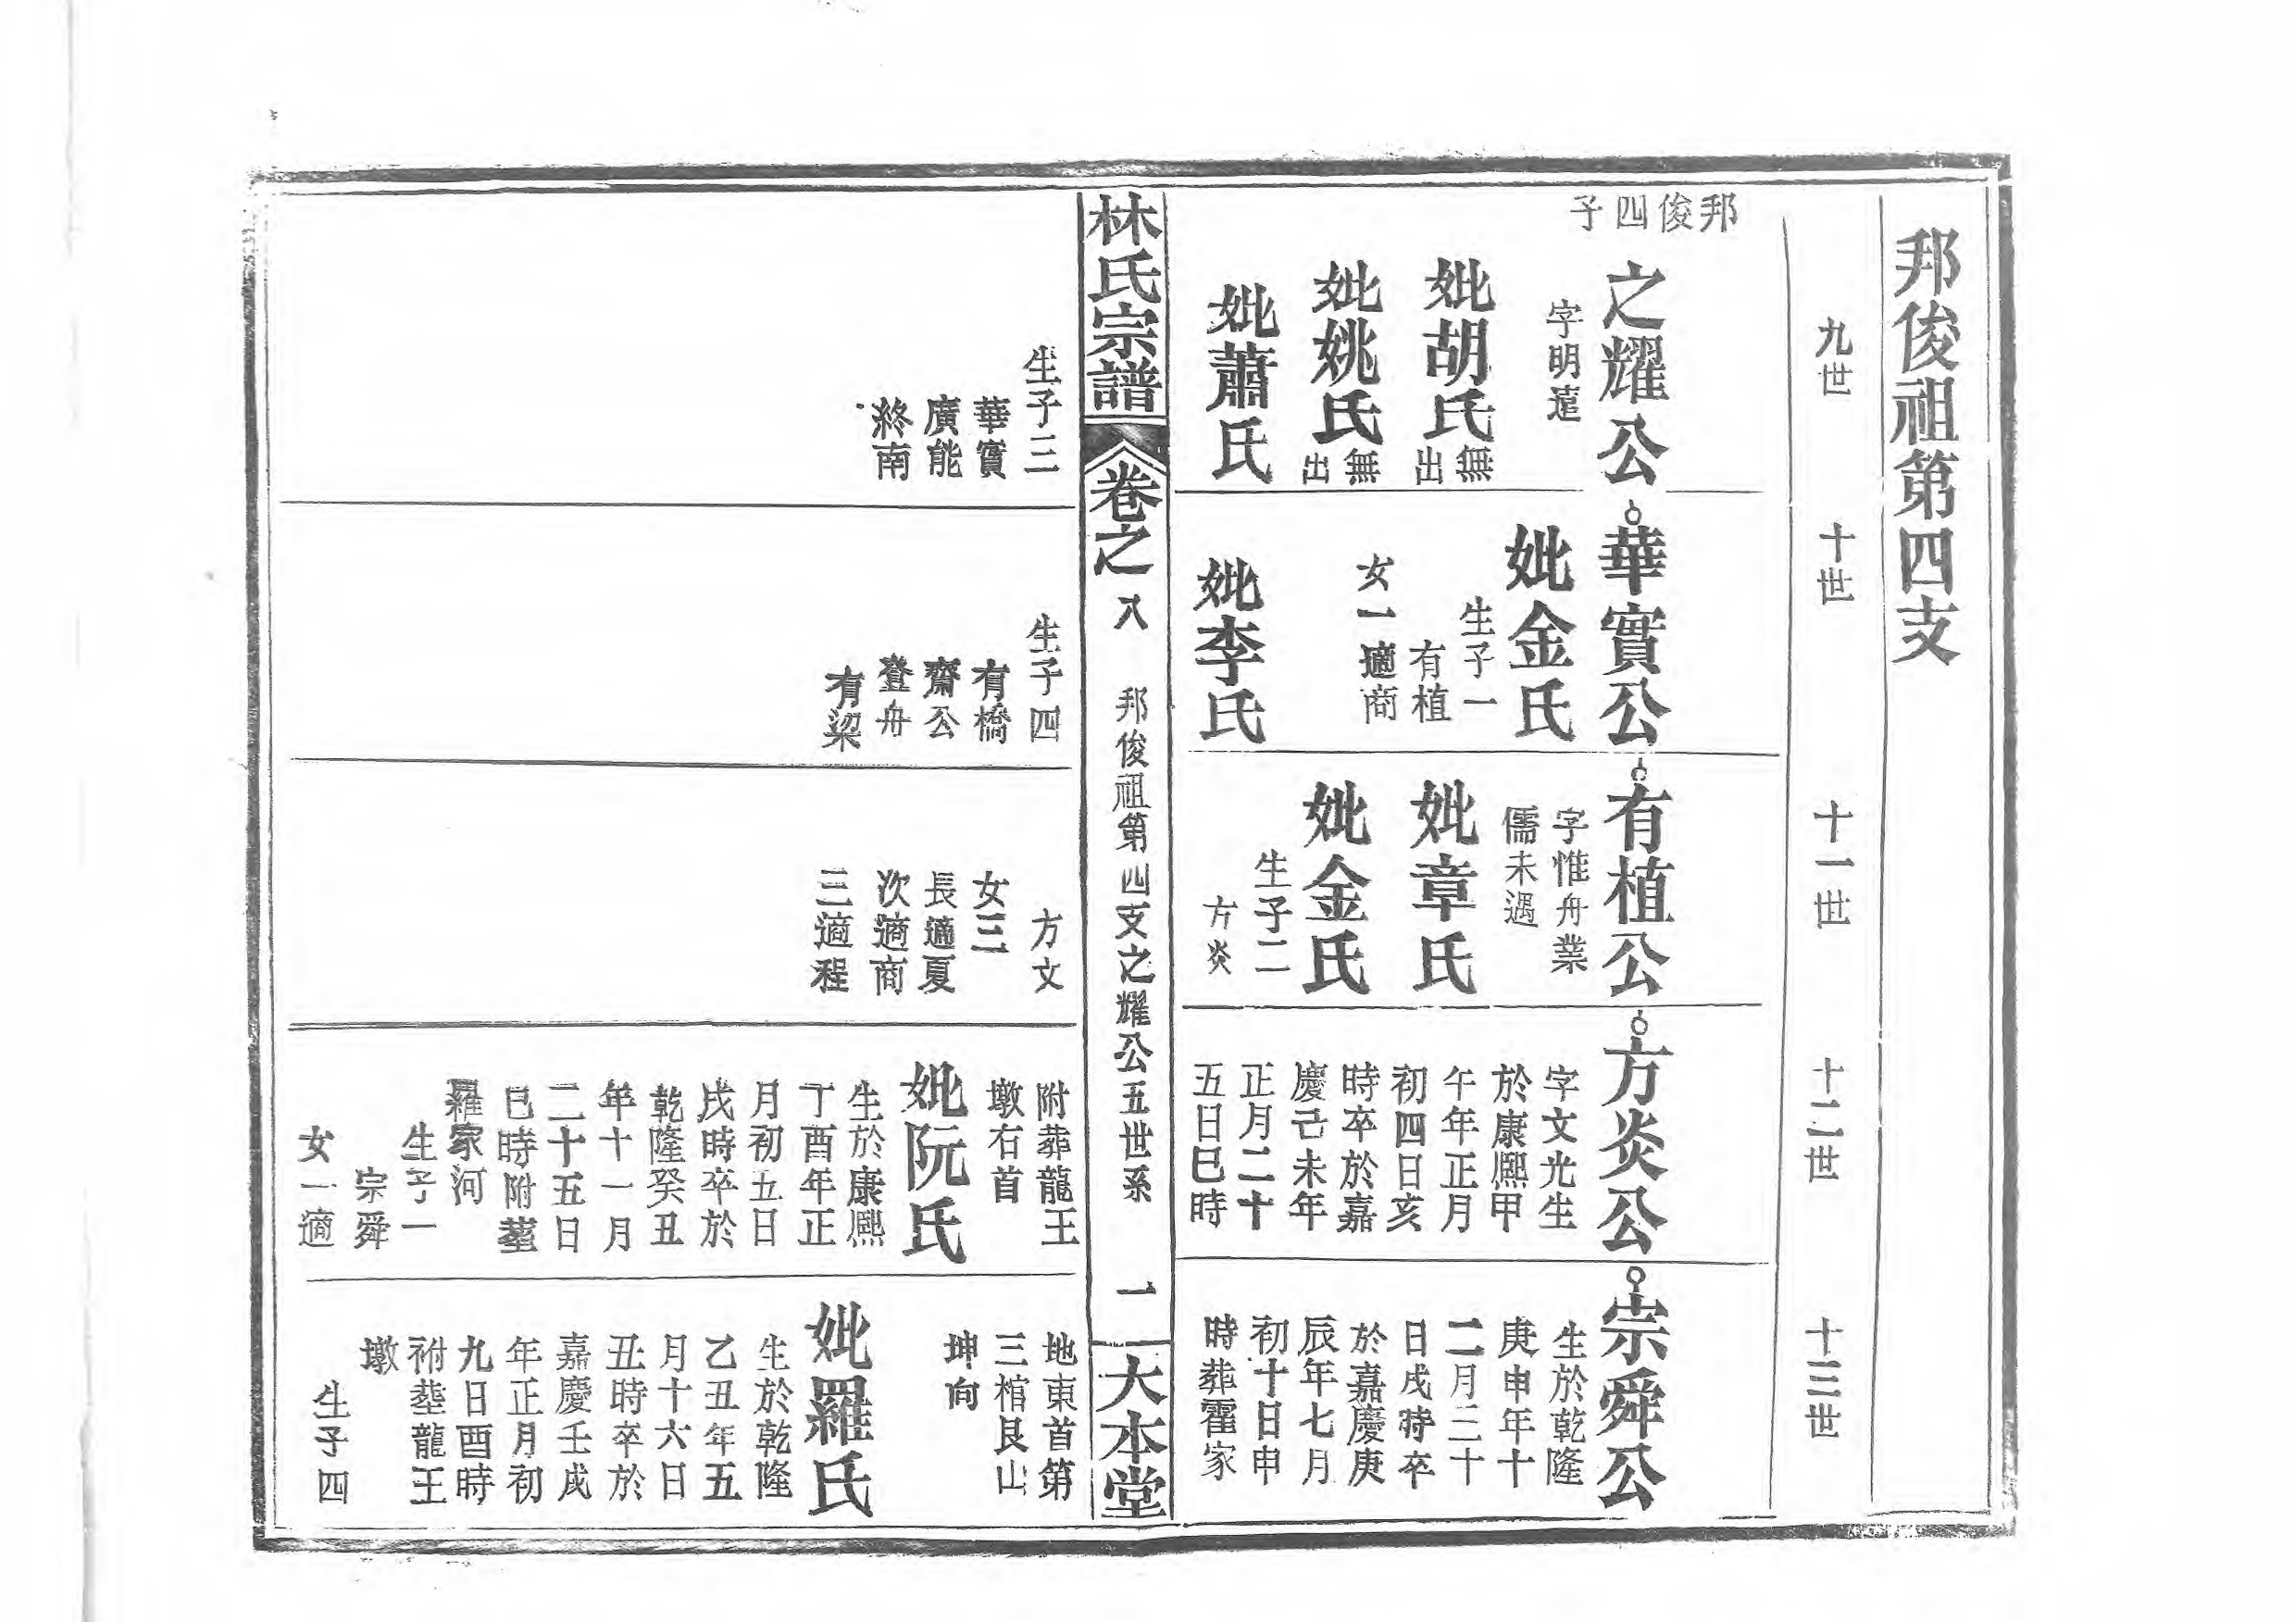 邦俊祖第四支
九世
十世
十一世
十二世
十三世
邦俊四子
之耀公
字明遠
妣胡氏
無
出
妣姚氏
無
出
妣蕭氏
生子三
華實
廣能
終南
華實公
妣金氏
生子一
有植
女一適商
妣李氏
生子四
有橋
齋公
登舟
有梁
有植公
字惟舟業
儒未遇
妣章氏
妣金氏
生子二
方炎
方文
女三
長適夏
次適商
三適程
方炎公
字文光生
於康熙甲
午年正月
初四日亥
時卒於嘉
慶己未年
正月二十
五日巳時
附葬龍王
墩右首
妣阮氏
生於康熙
丁酉年正
月初五日
戌時卒於
乾隆癸丑
年十一月
二十五日
巳時附塟
羅家河
生子一
宗舜
女一適
宗舜公
生於乾隆
庚申年十
二月三十
日戌時卒
於嘉慶庚
辰年七月
初十日申
時葬霍家
地東首第
三棺艮山
坤向
妣羅氏
生於乾隆
乙丑年五
月十六日
丑時卒於
嘉慶壬戌
年正月初
九日酉時
祔塟龍王
墩
生子四
林氏宗譜
卷之八
邦俊祖第四支之耀公五世系
一
大本堂